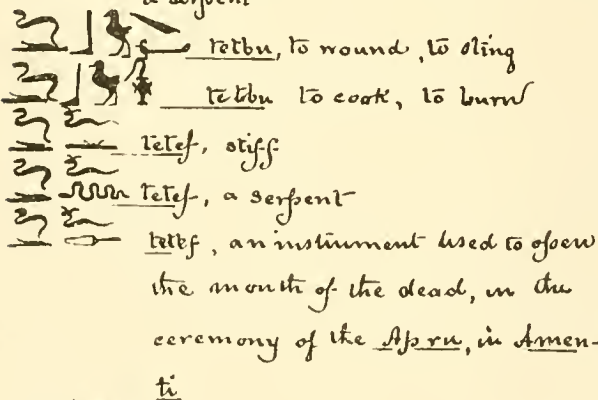 a serpent
tetbu, to wound, to sting
tetbu to cook, to burn
tetef, stiff
tetef, a serpent
tetef, an instrument used to open
the mouth of the dead, in the
ceremony of the Apru, in Amen-
ti